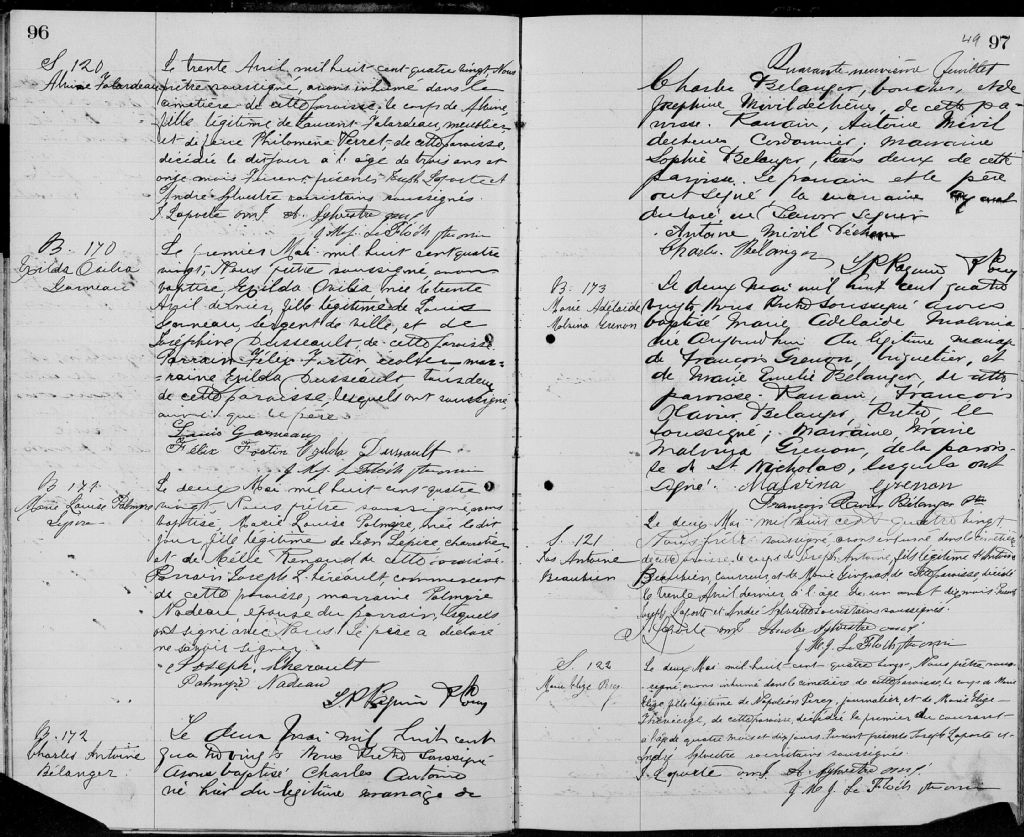 96
S. 120
Alvine Falardeau
Le trente Avril mil huit-cent-quatre vingt, Nous
prêtre soussigné, avons inhumé dans le
cimetière de cette paroisse, le corps de Alvine,
fille légitime de Laurent Falardeau, meublier
et de feue Philomène Verret, de cette paroisse,
décédée le dit jour à l'âge de trois ans et
onze mois. Furent présents Joseph Laporte et
André Sylvestre sacristains soussignés.
J. Laporte A. Sylvestre
J. M. J. Le Floch
B. 170
Exilda Osilia
Garneau
Le premier Mai mil huit cent quatre
vingt, Nous prêtre soussigné avons
baptisé Exilda Osilia née le trente
Avril dernier, fille légitime de Louis
Garneau, sergent de ville, et de
Joséphine Dusseault, de cette paroisse.
Parrain Félix Fortin écolier, mar-
raine Exilda Dusseault tous deux
de cette paroisse, lesquels ont soussigné
ainsi que le père.
Louis Garneau
Félix Fortin Exilda Dussault
J. M. J. Le Floch
B. 171
Marie Louise Palmyre
Lepire
Le deux Mai mil huit cent quatre
vingt, Nous prêtre soussigné avons
baptisé Marie Louise Palmyre, née le dit
jour, fille légitime de Léon Lepire, charretier
et de Renaud de cette paroisse.
Parrain Joseph L. Thérault, commercant
de cette paroisse, marraine Palmyre
Nadeau, épouse du parrain, lesquels
ont signé avec Nous. Le père a déclaré
ne savoir signer.
Joseph Therault
Palmyre Nadeau
B. 172
Charles Antoine
Bélanger
Le deux Mai mil huit cent
quatre vingt Nous Prêtre soussigné
avons baptisé Charles Antoine
né hier du légitime mariage de
49 97
Quarante neuvième feuillet
Charles Bélanger, boucher, et de
Joséphine Mivil dechêne, de cette pa-
roisse. Parrain, Antoine Mivil
dechenes Cordonnier, marraine
Sophie Bélanger, tous deux de cette
paroisse. Le parrain et le père
ont signé, la marraine ayant
déclaré ne savoir signer
Antoine Mivil Dechene
Charles Bélanger
B. 173
Marie Adélaïde
Malvina Grenon
Le deux mai mil huit cent quatre
vingt, Nous Prêtre Soussigné avons
baptisé Marie Adelaïde Malvina
née Aujourd'hui du légitime mariage
de François Grenon, briquetier, et
de Marie Emelie Bélanger, de cette
paroisse. Parrain, François
Xavier Bélanger, Prêtre le
soussigné, Marraine Marie
Malvina Grenon, de la parois-
se de St Nicholas, lesquels ont
signé. Malvina Grenon
François Xavier Bélanger Ptre
S. 121
Jos Antoine
Beaubien
Le deux Mai mil huit cent quatre vingt
Nous prêtre soussigné avons inhumé dans le cimetière
de cette paroisse, le corps de Joseph Antoine, fils légitime d'Antoine
Beaubien, couvreur, et de Marie Gingras de cette paroisse, décédé
le trente Avril dernier à l'âge de un an et dix mois. Furent
Joseph Laporte et André Sylvestre sacristains soussignés.
J. Laporte André Sylvestre
J. M. J. Le Floch
S. 122
Marie Elize
Le deux Mai mil huit-cent-quatre vingt, Nous prêtre sous-
signé, avons inhumé dans le cimetière de cette paroisse, le corps de Marie
Elize fille légitime de Napoléon journalier et de Marie Elize
de cette paroisse, décédée le premier du courant
à l'âge de quatre mois et dix jours. Furent présents Joseph Laporte et
André Sylvestre sacristains soussignés.
J. Laporte A. Sylvestre
J. M. J. Le Floch